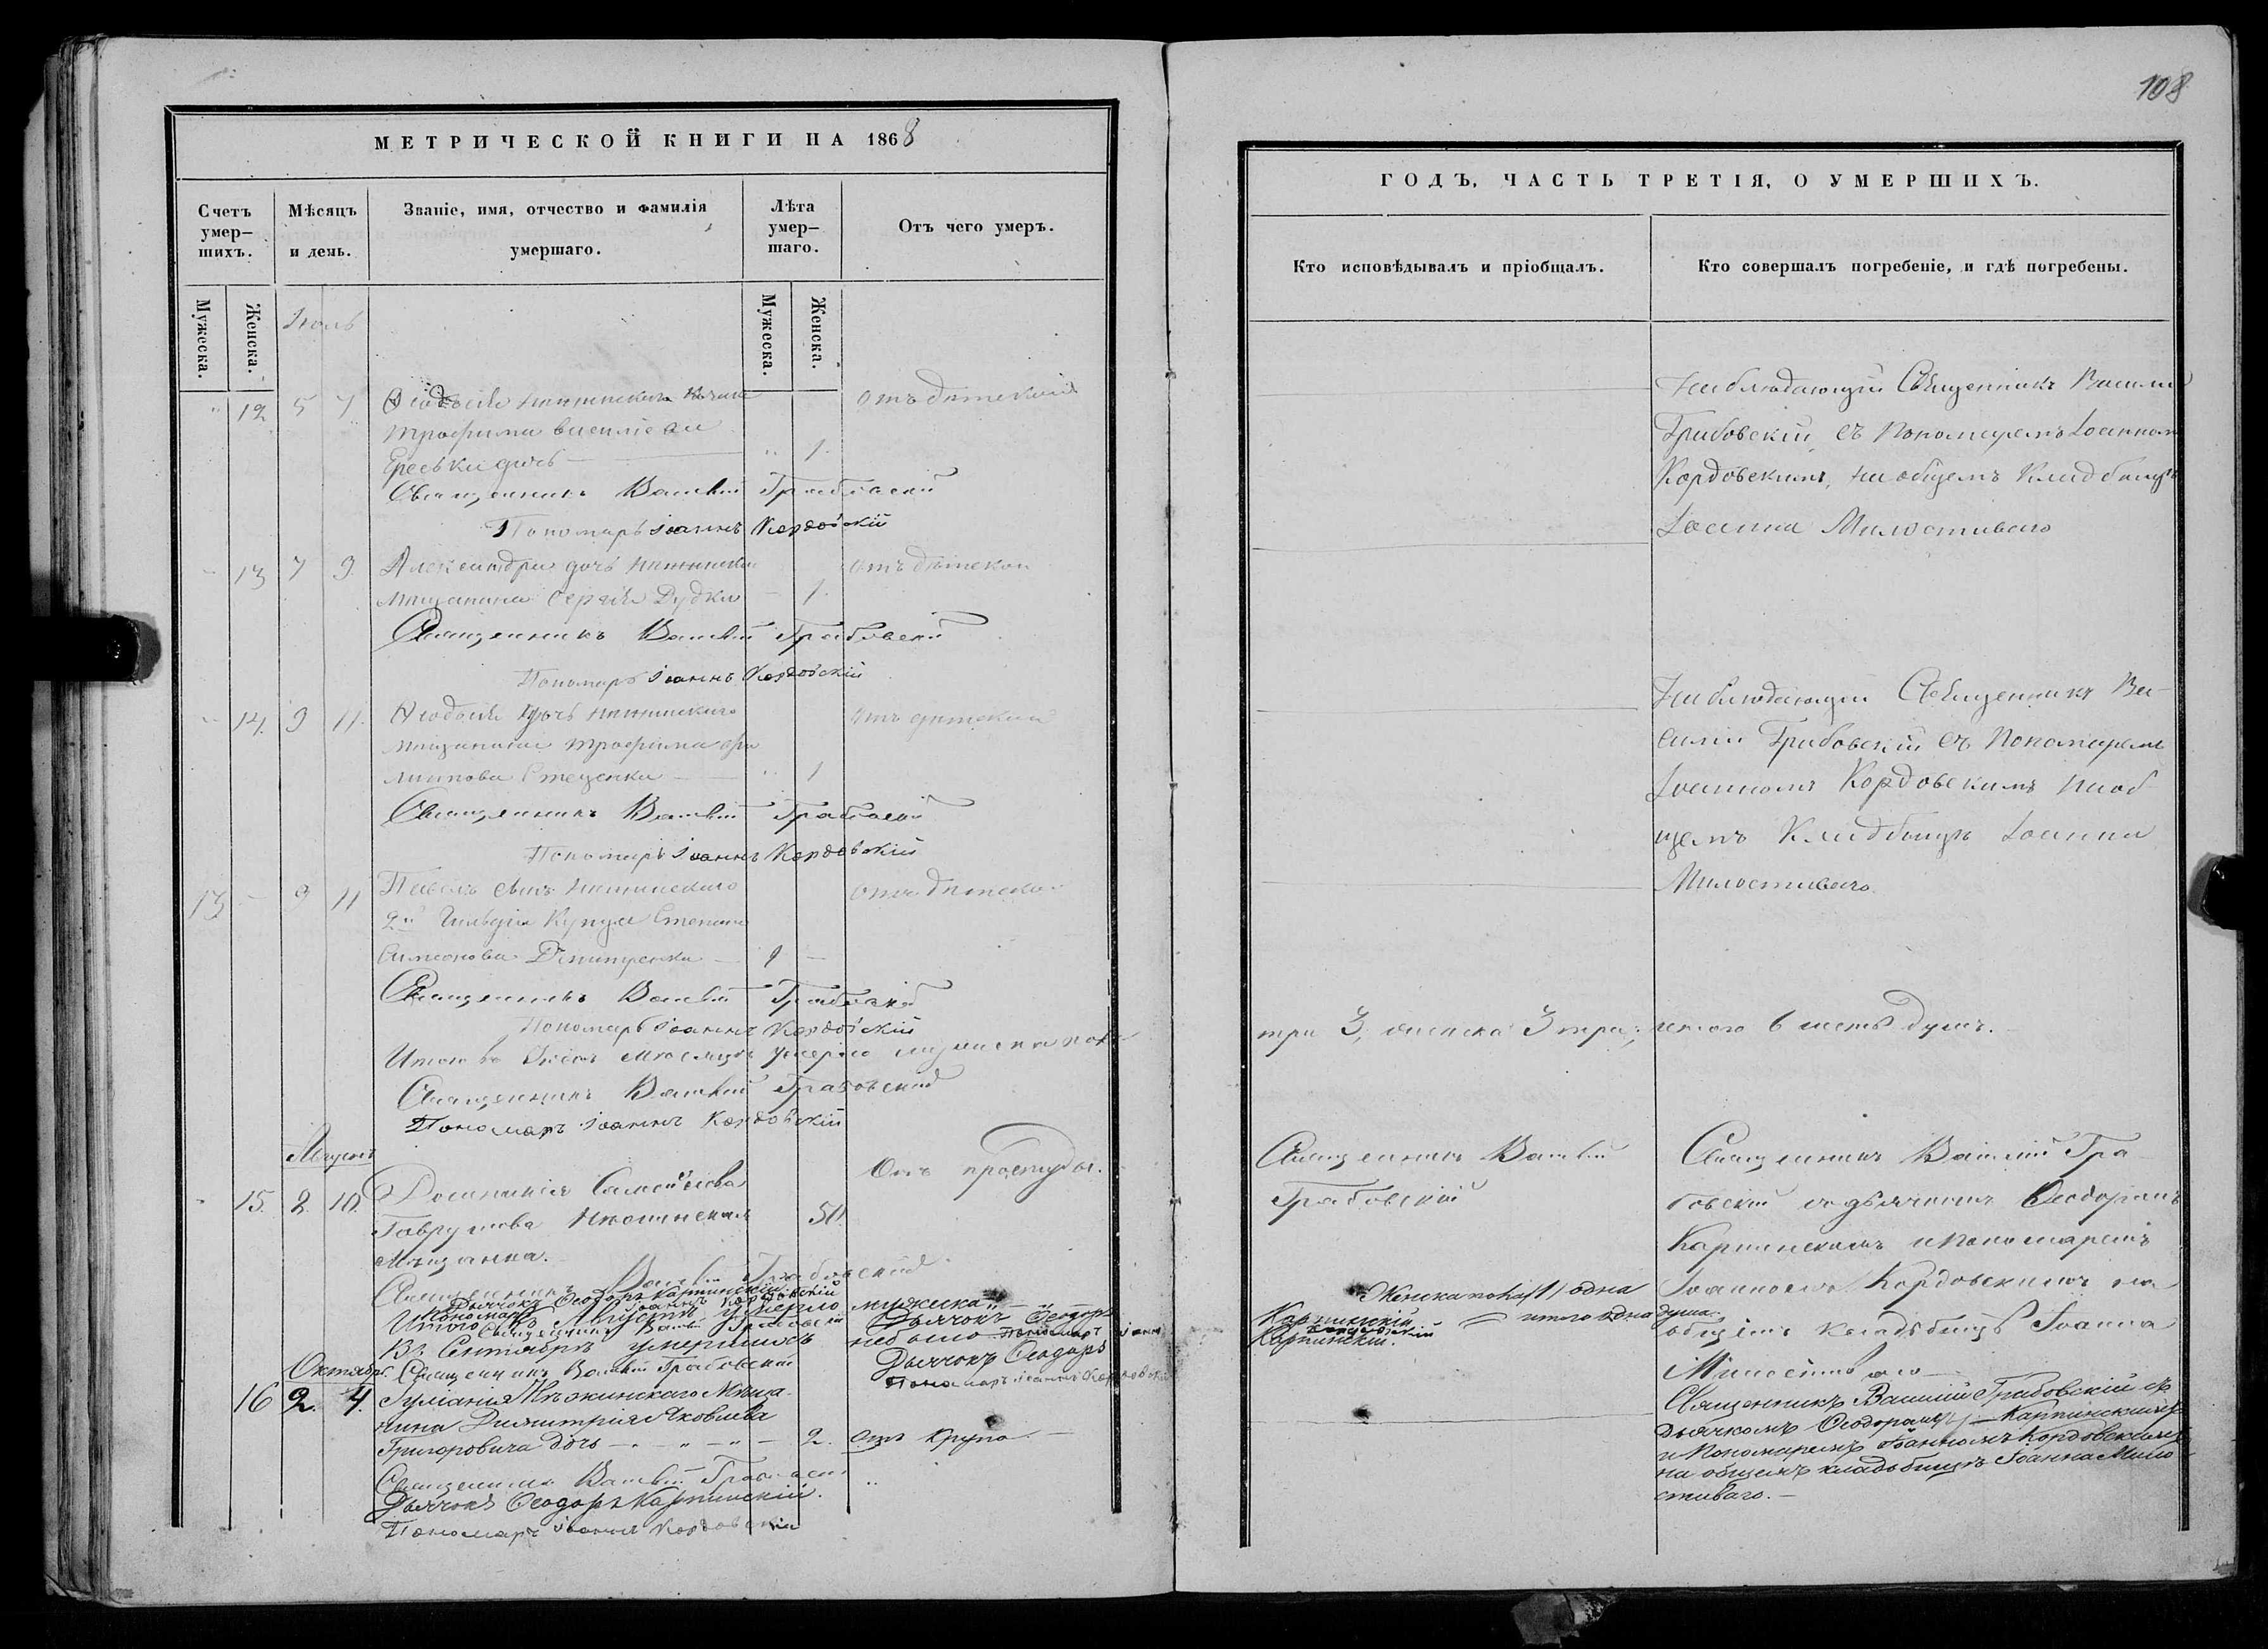 108
МЕТРИЧЕСКОЙ КНИГИ НА 1868
Счетъ умер-шихъ.
Мѣсяцъ и день.
Званіе, имя, отчество и фамилія умершаго.
Лѣта умер-шаго.
Отъ чего умеръ.
Мужеска.
Женска.
Мужеска.
Женска.
Іюль
12 5 7
Трофима
дочь 1.
Священникъ Василій Грабовскій
Пономарь Іоаннъ Кордовскій
13 7 9 Александра дочь
мѣщанина Сергѣя Дудки 1.
Священникъ Василій Грабовскій
Пономарь Іоаннъ Кордовскій
14. 9 11. Ѳеодосія дочь нѣжинскаго
мѣщанина Трофима
Стеценка 1
Священникъ Василій Грабовскій
Пономарь Іоаннъ Кордовскій
13 9 11 Павелъ сынъ нѣжинскаго
2й гильдіи купца Степана
Симеонова 1
Священникъ Василій Грабовскій
Пономарь Іоаннъ Кордовскій
Итого въ Іюлѣ мѣсяцѣ умерло мужеска пола
Священникъ Василій Грабовскій
Пономарь Іоаннъ Кордовскій
Августъ
15. 8. 10. Отъ простуды.
Нѣжинская 50.
Мѣщанка.
Священникъ Василій Грабовскій
Дьячокъ Ѳеодоръ Карпинскій
Пономарь Іоаннъ Кордовскій
Итого въ Августѣ умерло мужеска
Священникъ Василій Грабовскій Дьячокъ Ѳеодоръ
Въ Сентябрѣ умершихъ небыло Пономарь Іоаннъ
Священникъ Василій Грабовскій Дьячокъ Ѳеодоръ
Пономарь Іоаннъ Кордовскій
Октябрь
16 2. 4. Іуліанія Нѣжинскаго Мѣща-
нина Димитрія Яковлева
Григоровича дочь 2. Отъ Крупа
Священникъ Василій Грабовскій
Дьячокъ Ѳеодоръ Карпинскій.
Пономарь Іоаннъ Кордовскій
ГОДЪ, ЧАСТЬ ТРЕТІЯ, О УМЕРШИХЪ.
Кто исповѣдывалъ и пріобщалъ.
Кто совершалъ погребеніе, и гдѣ погребены.
Наблюдающій Священникъ Василій
Грабовскій, съ Пономаремъ Іоанномъ
Кордовскимъ, на общемъ Кладбищѣ
Іоанна Милостиваго
Наблюдающій Священникъ Ва-
силій Грабовскій съ Пономаремъ
Іоанномъ Кордовскимъ на об
щемъ Кладбищѣ Іоанна
Милостиваго.
три 3, женска 3 три; итого 6 шесть душъ.
Священникъ Василій
Грабовскій
Священникъ Василій Гра
бовскій съ дьячкомъ Ѳеодоромъ
Карпинскимъ и Пономаремъ
Іоанномъ Кордовскимъ на
общемъ кладбищѣ Іоанна
Милостиваго
Женска пола /1/ одна
Карпинскій итого одна душа.
Кордовскій
Карпинскій.
Священникъ Василій Грабовскій съ
Дьячкомъ Ѳеодоромъ Карпинскимъ
и Пономаремъ Іоанномъ Кордовскимъ
на общемъ кладбищѣ Іоанна Мило
стиваго.